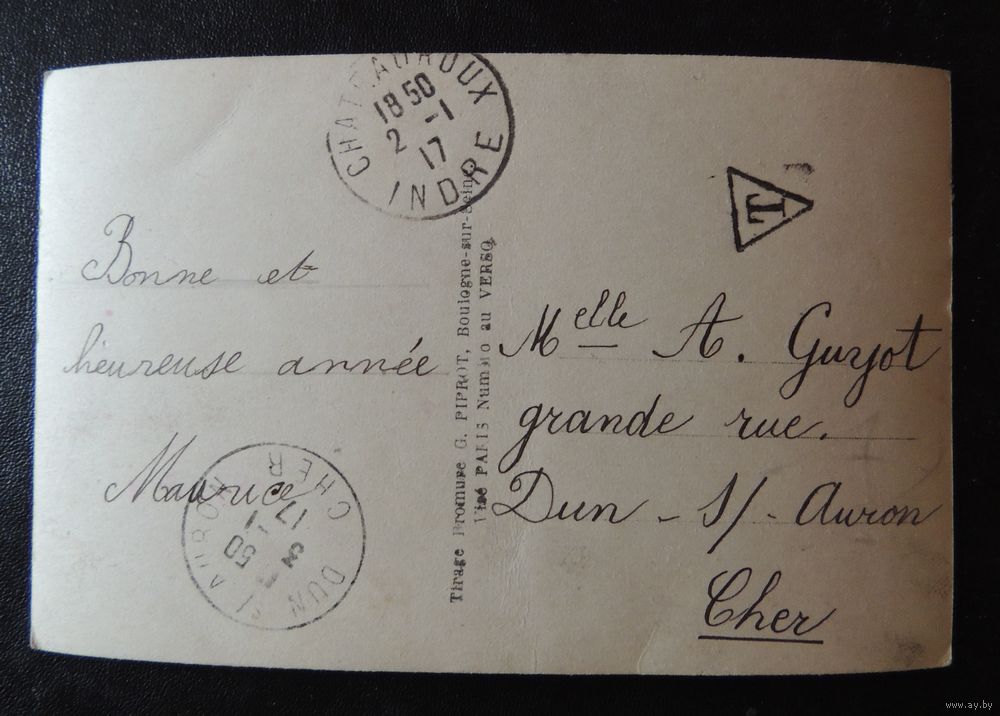 CHATEAUROUX
18 50
2 -1
17
INDRE
T
Bonne et
heureuse année
Maurice
Tirage Bromure G. PIPROT, Boulogne-sur-Seine
Visé PARIS Numéro au VERSO
Melle A. Guyot
grande rue.
Dun - s/ - Auron
Cher
DUN S/ AURON
50
3 - 1
17
CHER
www.ay.by